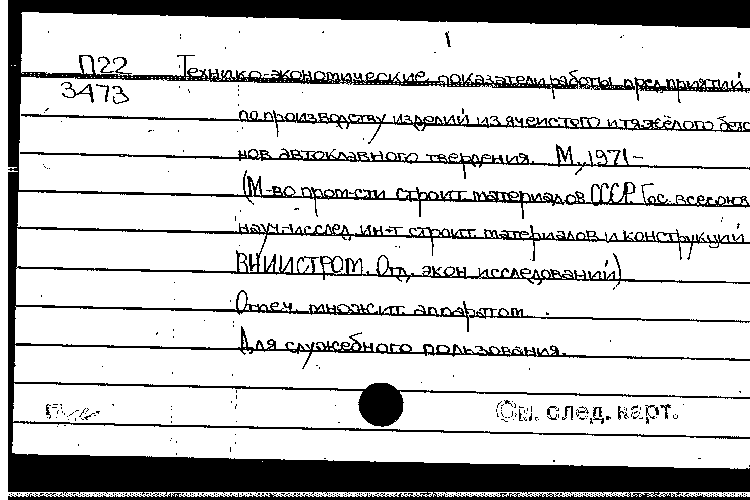 1
П22 Технико-экономические показатели работы предприятий
3473
по производству изделий из ячеистого и тяжёлого бето
нов автоклавного твердения. М, 1971-
(М-во пром-сти строит. материалов СССР. Гос. всесоюзн
науч.-исслед. ин-т строит. материалов и конструкций
ВНИИСТРОМ. Отд. экон. исследований)
Отпеч. множит. аппаратом.
Для служебного пользования.
См. след. карт.